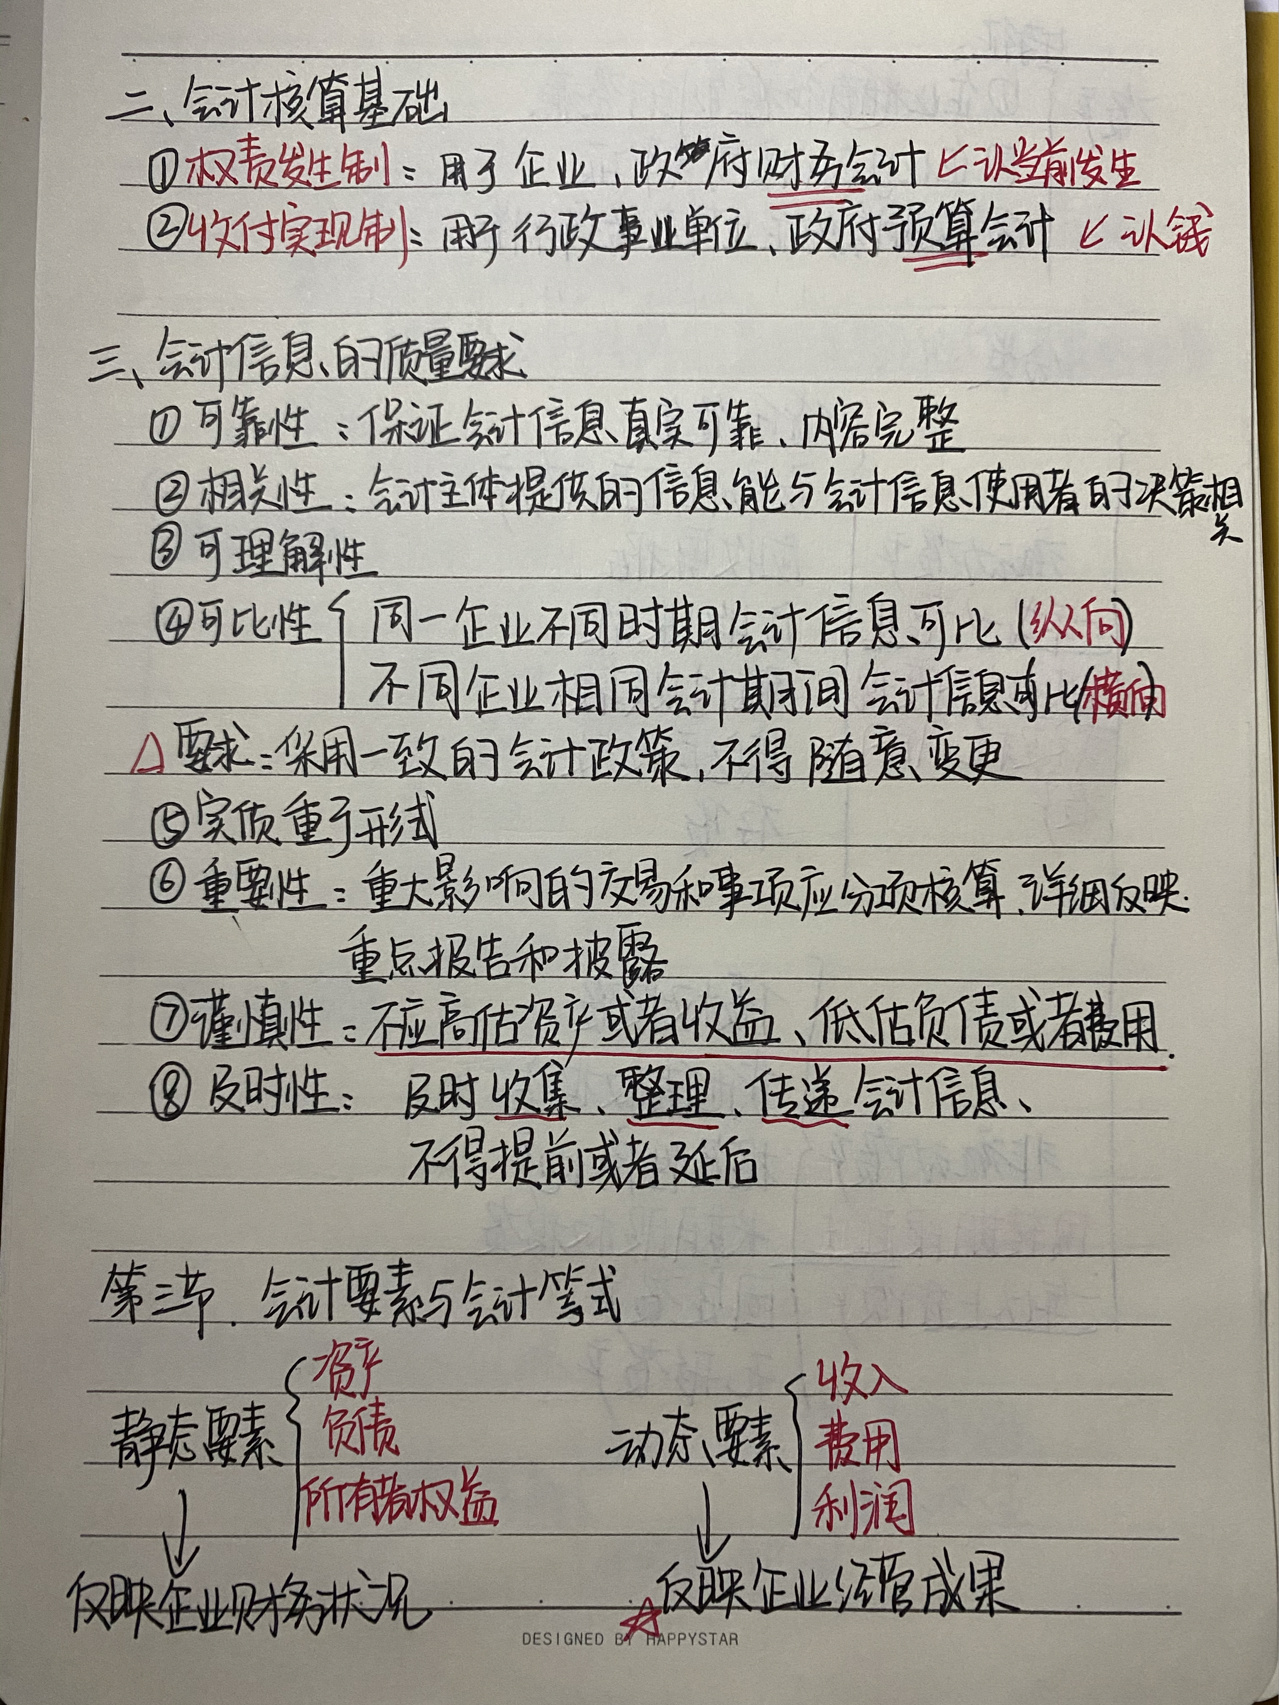 二、会计核算基础
①权责发生制：用于企业、政府财务会计 ← 认当前发生
②收付实现制：用于行政事业单位、政府预算会计 ← 认钱
三、会计信息的质量要求
①可靠性：保证会计信息真实可靠、内容完整
②相关性：会计主体提供的信息能与会计信息使用者的决策相关
③可理解性
④可比性 { 同一企业不同时期会计信息可比(纵向)
不同企业相同会计期间会计信息可比(横向)
△要求：采用一致的会计政策,不得随意变更
⑤实质重于形式
⑥重要性：重大影响的交易和事项应分项核算、详细反映.
重点报告和披露
⑦谨慎性：不应高估资产或者收益、低估负债或者费用.
⑧及时性：及时收集、整理、传递会计信息、
不得提前或者延后
第三节.会计要素与会计等式
静态要素 { 资产
负债
所有者权益
↓
反映企业财务状况
动态要素 { 收入
费用
利润
↓
☆反映企业经营成果
DESIGNED BY HAPPYSTAR